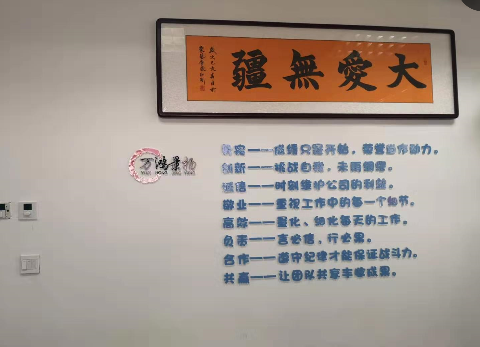 大愛無疆
万鸿景
务实——成绩只是开始，荣誉当作动力。
创新——挑战自我，未雨绸缪。
诚信——时刻维护公司的利益。
敬业——重视工作中的每一个细节。
高效——量化、细化每天的工作。
负责——言必信，行必果。
合作——遵守纪律才能保证战斗力。
共赢——让团队共享丰硕成果。